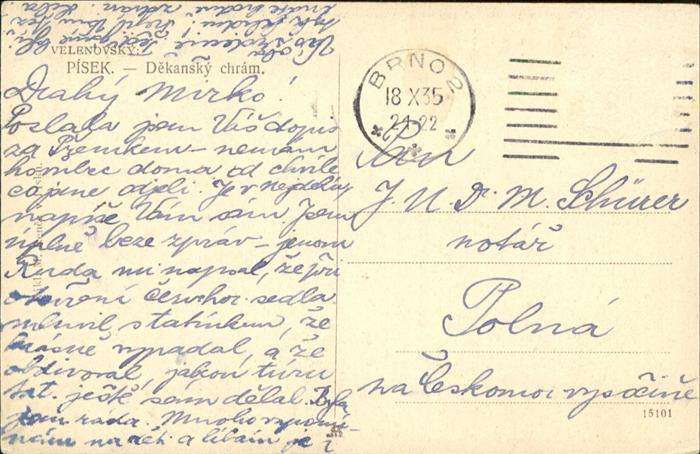 VELENOVSKÝ
PÍSEK. — Děkanský chrám.
Drahý Mirko!
Poslala jsem Váš dopis
za Přemkem — nemám
doma od chvíle
co jsme odjeli. Je v
napíše Vám sám. Jsem
úplně beze zpráv — jenom
Ruda mi napsal, že při
otevření Červenohor. sedla
mluvil s tatínkem, že
krásně vypadal, a že
obdivoval, jakou turu
tat. ještě sám dělal. Byla
jsem ráda. Mnoho vzpomí-
nám na a líbám je i
BRNO 2
18 X 35
21-22
Pan
J. U. Dr. M. Schürer
notář
Polná
na Českomor. vysočině
15101